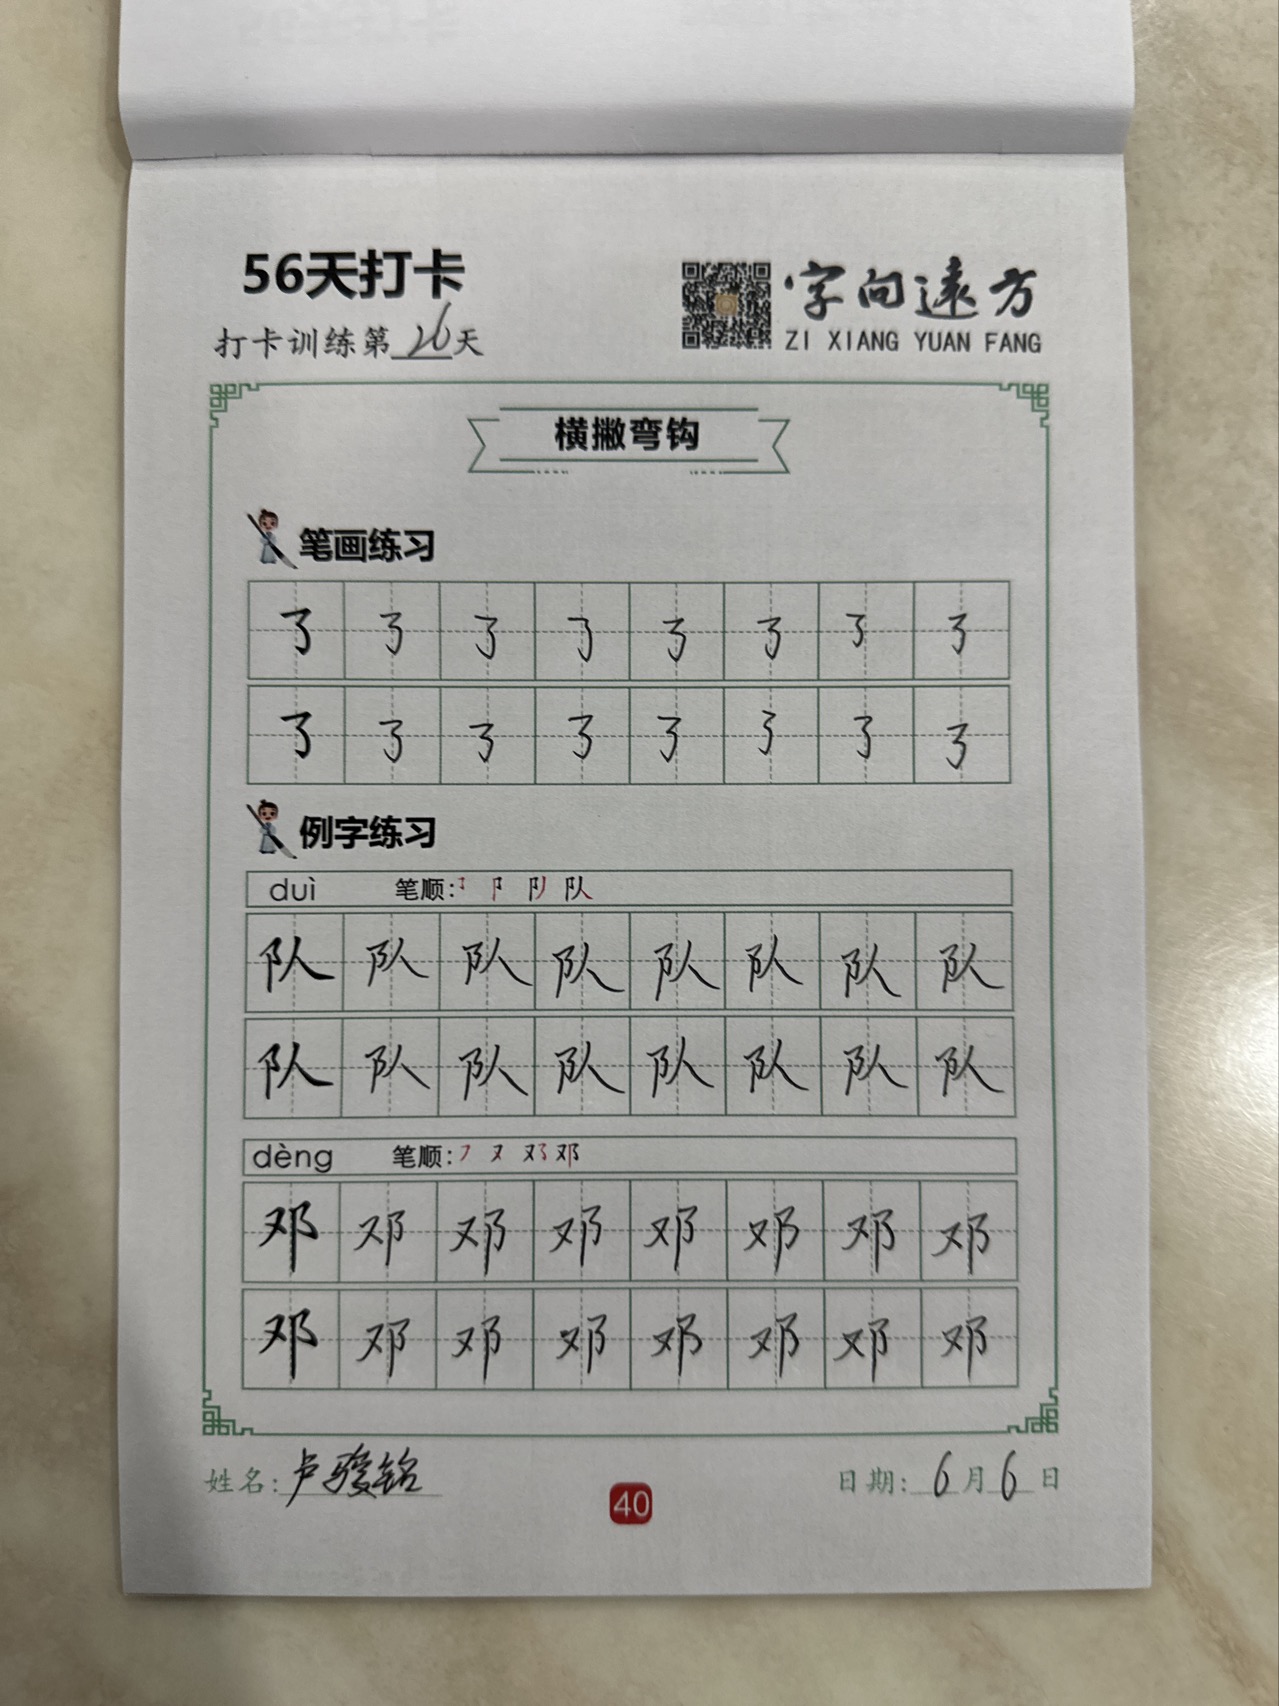 56天打卡
字向遠方
ZI XIANG YUAN FANG
打卡训练第26天
横撇弯钩
笔画练习
㇌ ㇌ ㇌ ㇌ ㇌ ㇌ ㇌ ㇌
㇌ ㇌ ㇌ ㇌ ㇌ ㇌ ㇌ ㇌
例字练习
duì 笔顺: ㇌ 阝 队
队 队 队 队 队 队 队 队
队 队 队 队 队 队 队 队
dèng 笔顺: ㇇ 又 邓
邓 邓 邓 邓 邓 邓 邓 邓
邓 邓 邓 邓 邓 邓 邓 邓
姓名: 卢骏铭
40
日期: 6月6日